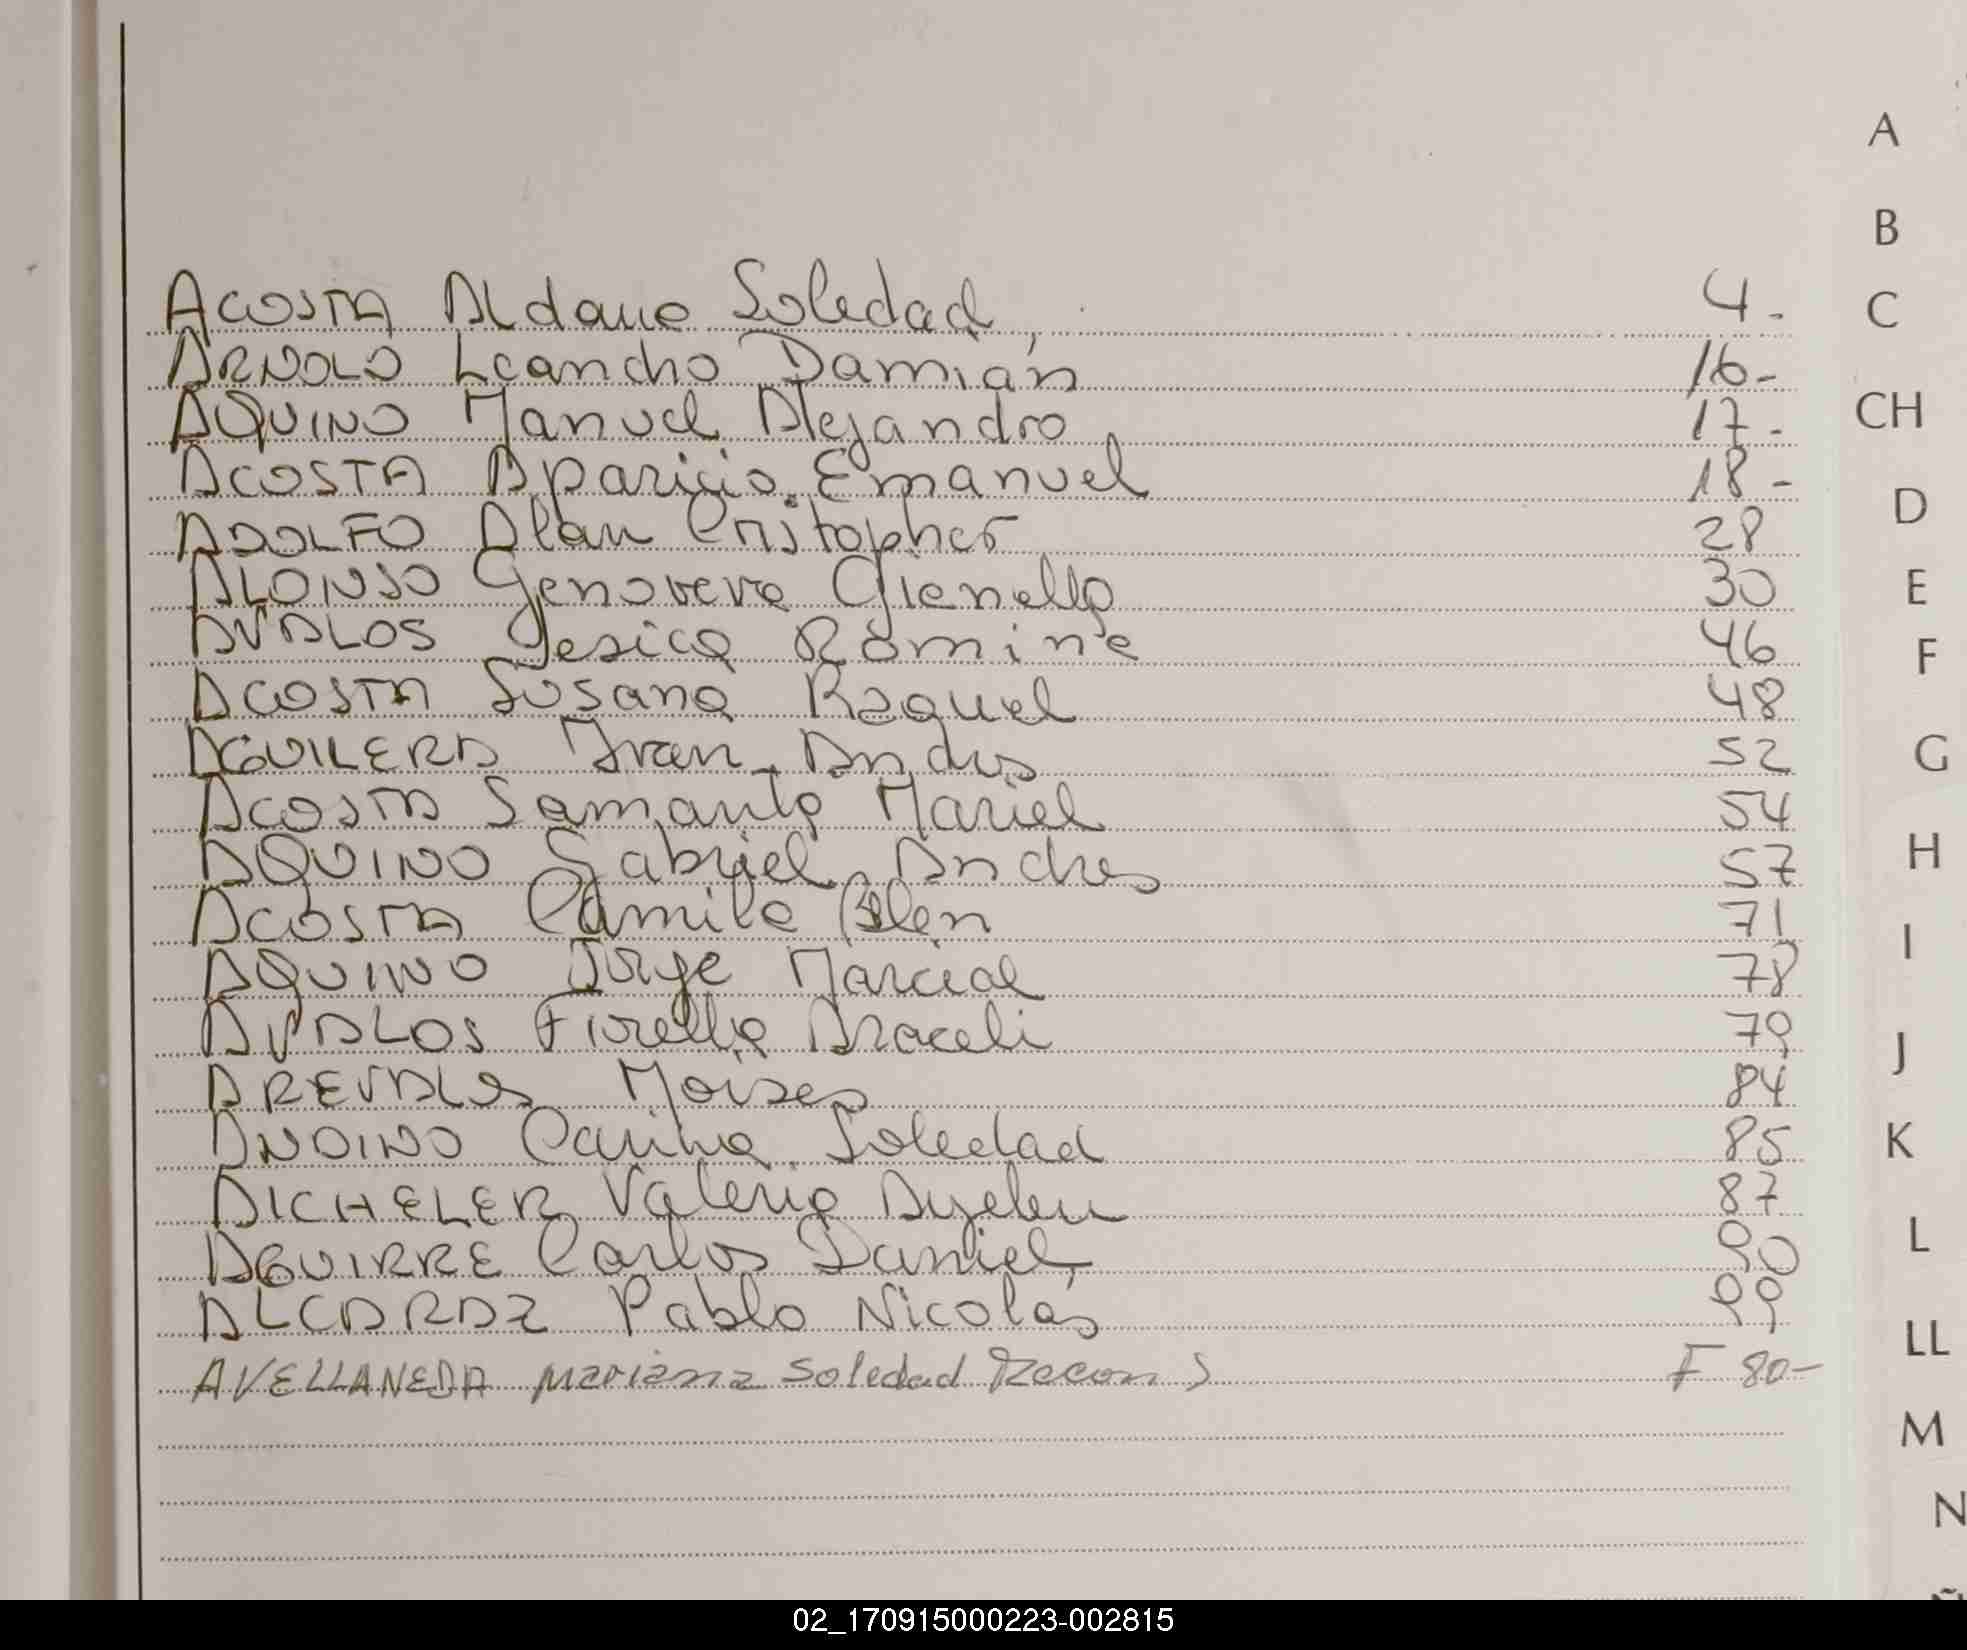 ACOSTA Aldana Soledad 4-
ARNOLD Leandro Damián 16-
AQUINO Manuel Alejandro 17-
ACOSTA Aparicio Emanuel 18-
ADOLFO Alan Cristopher 28
ALONSO Genoveva Gienella 30
AVALOS Jesica Romina 46
ACOSTA Susana Raquel 48
AGUILERA Ivan Andres 52
ACOSTA Samanta Mariel 54
AQUINO Gabriel Andres 57
ACOSTA Camila Belén 71
AQUINO Jorge Marcial 78
AVALOS Fiorella Araceli 79
AREVALOS Moises 84
ANDINO Carina Soledad 85
AICHELER Valeria Ayelen 87
AGUIRRE Carlos Daniel 90
ALCARAZ Pablo Nicolás 99
AVELLANEDA Mariana Soledad F 80-
A
B
C
CH
D
E
F
G
H
I
J
K
L
LL
M
N
02_170915000223-002815